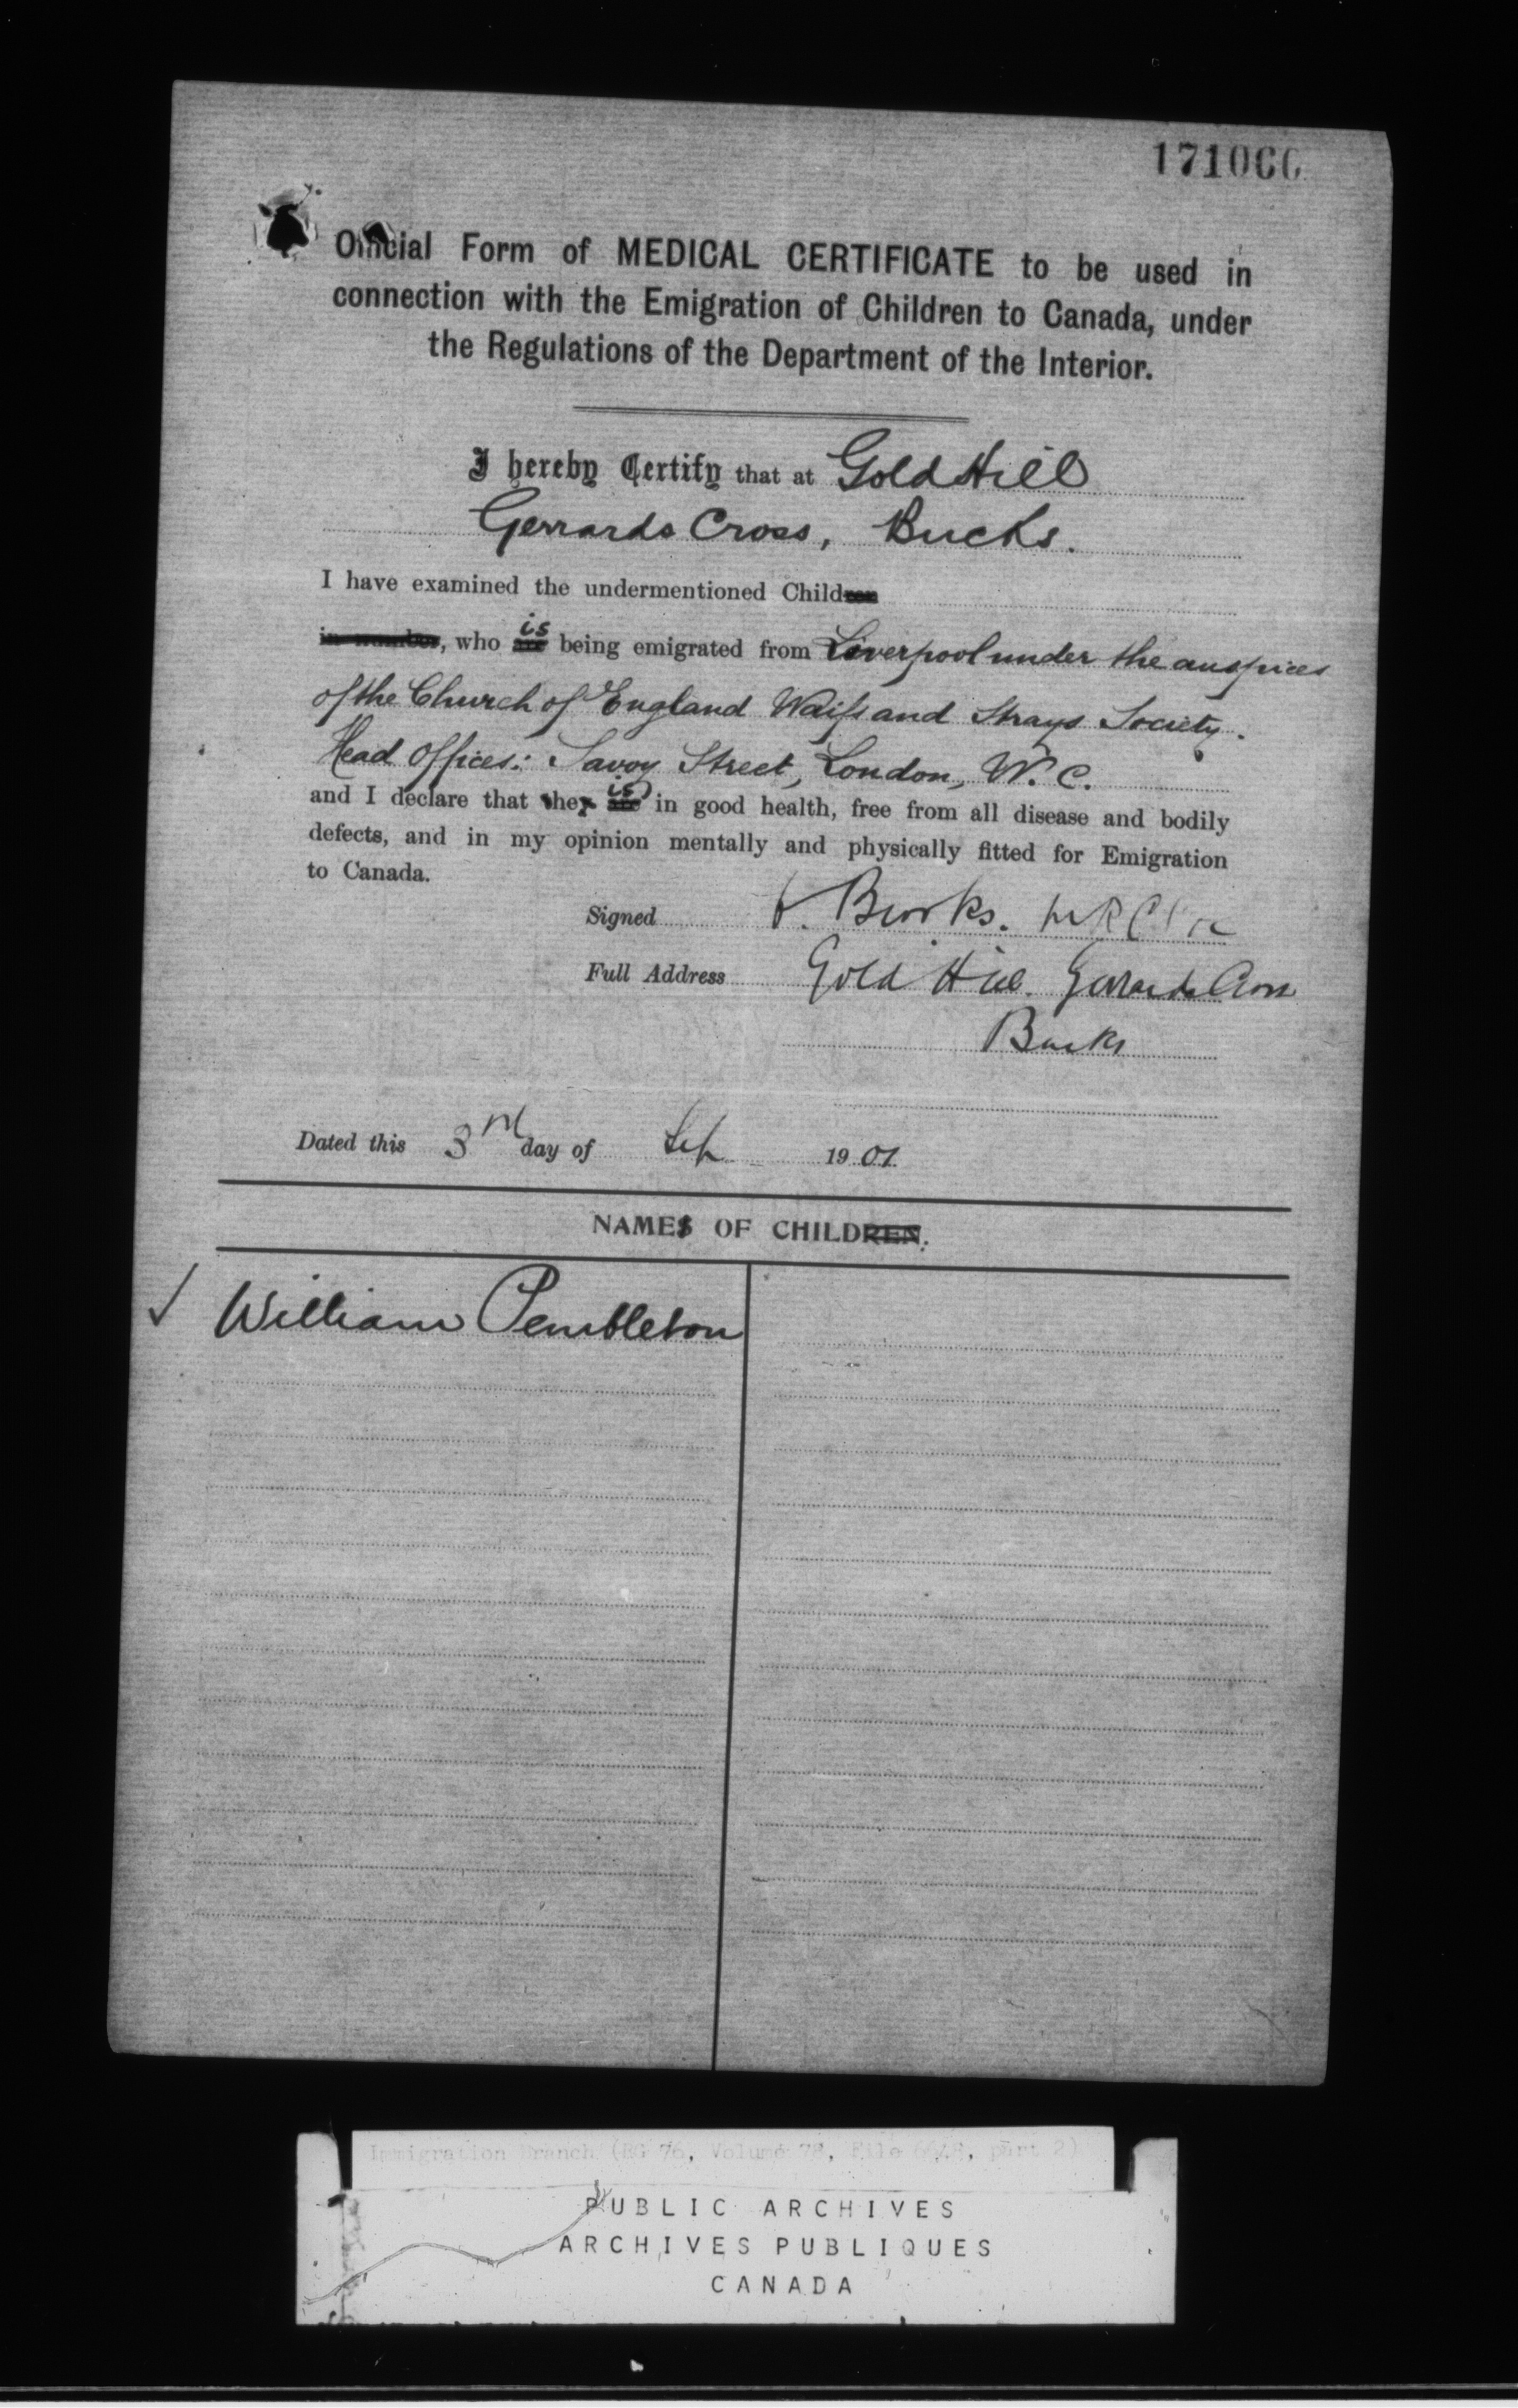 171066
Official Form of MEDICAL CERTIFICATE to be used in
connection with the Emigration of Children to Canada, under
the Regulations of the Department of the Interior.
I hereby Certify that at Gold Hill
Gerrards Cross, Bucks.
I have examined the undermentioned Children
in number, who are is being emigrated from Liverpool under the auspices
of the Church of England Waifs and Strays Society.
Head Offices: Savoy Street, London, W.C.
and I declare that they are is in good health, free from all disease and bodily
defects, and in my opinion mentally and physically fitted for Emigration
to Canada.
Signed Brooks.
Full Address Gold Hill. Gerrards Cross
Bucks
Dated this 3rd day of Sep 1901
NAMES OF CHILDREN.
William Pembleton
Immigration Branch (RG 76, Volume 78, File 6648, part 2)
PUBLIC ARCHIVES
ARCHIVES PUBLIQUES
CANADA